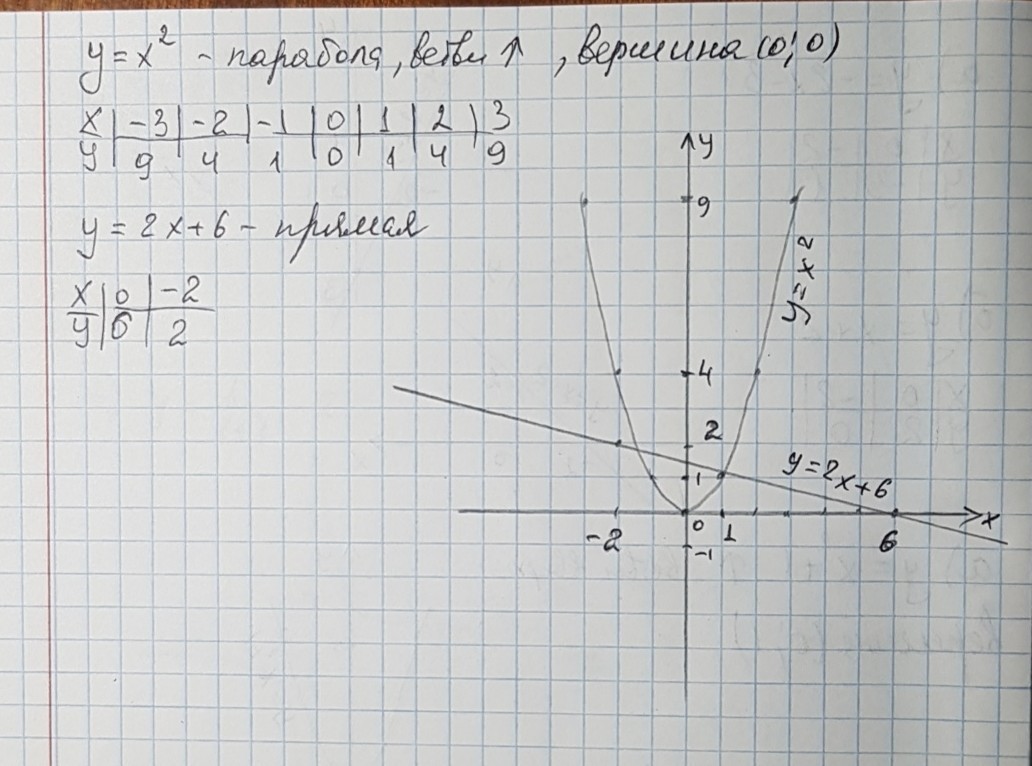 y = x² - парабола, ветви ↑, вершина (0; 0)
x | -3 | -2 | -1 | 0 | 1 | 2 | 3
y | 9 | 4 | 1 | 0 | 1 | 4 | 9
y = 2x+6 - прямая
x | 0 | -2
y | 6 | 2
y
9
y=x2
4
2
y=2x+6
1
x
-2 0 1 6
-1